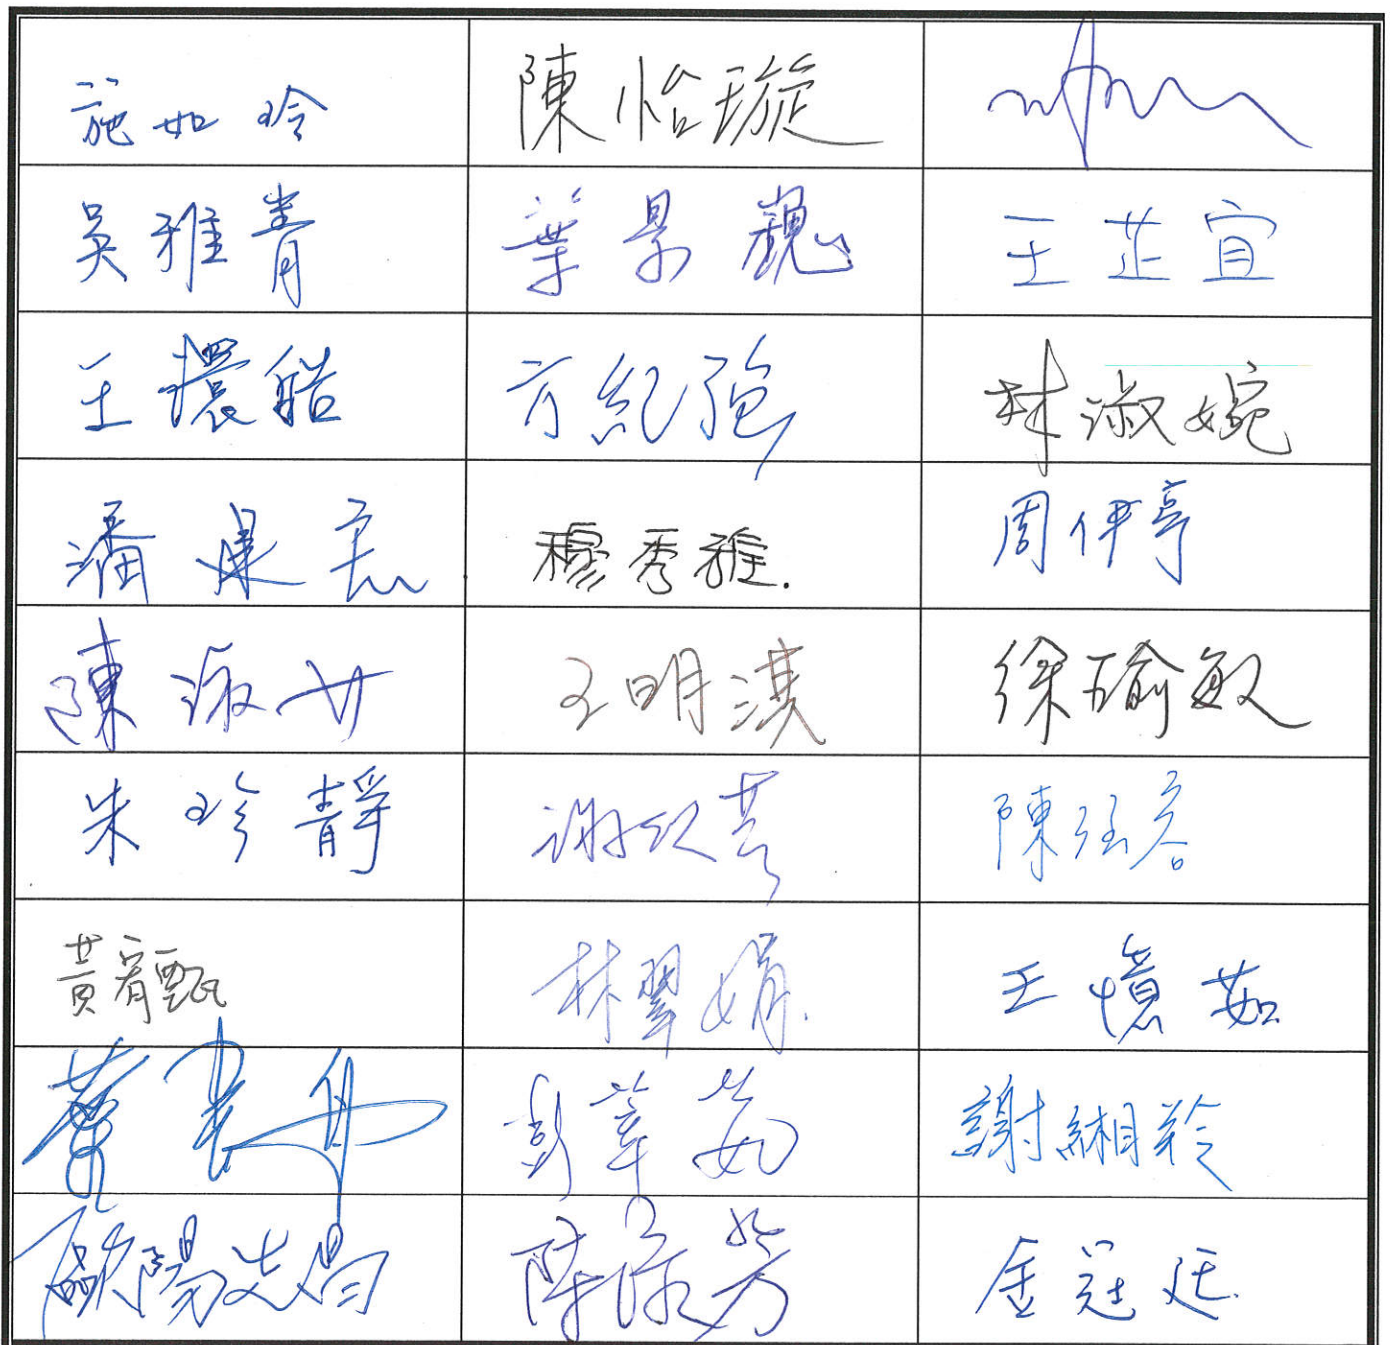 施如玲 陳怡璇
吳雅青 葉景巍 王芷宜
王擐皓 方紀強 林淑婉
潘建志 穆秀雅. 周伊亭
陳淑女 王明淇 徐瑜敏
朱珍靜 謝欣芸 陳
黃宥甄 林翠娟. 王憶茹
彭莘茹 謝緗羚
歐陽文昌 陳淑芳 金冠廷.